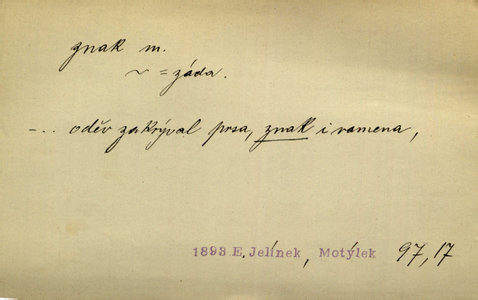 znak m.
~ = záda.
-... oděv zakrýval prsa, znak i ramena,
1893 E. Jelínek, Motýlek 97,17